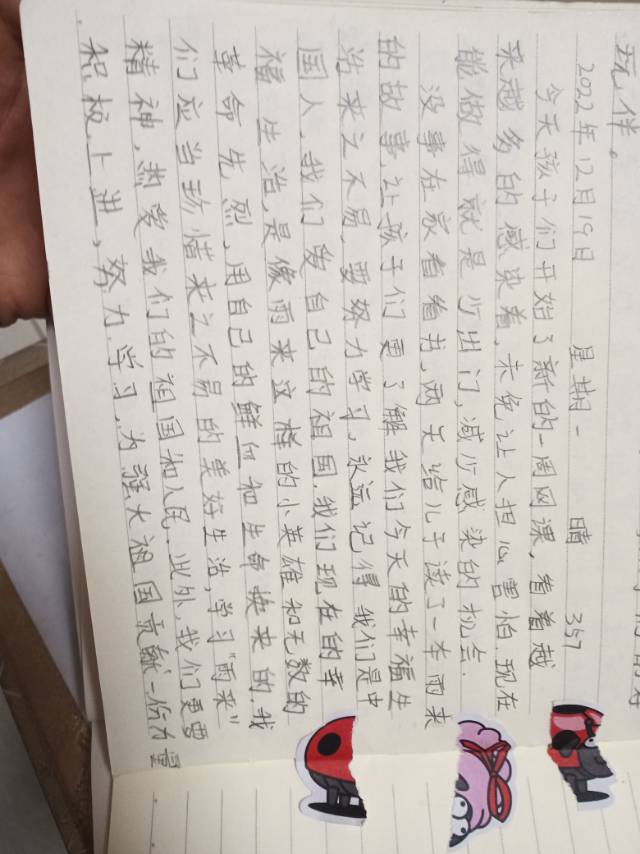 玩伴。
2022年12月19日 星期一 晴 357
今天孩子们开始了新的一周网课,看着越
来越多的感染着,未免让人担心害怕.现在
能做得就是少出门,减少感染的机会.
没事在家看看书,两天给儿子读了一本雨来
的故事,让孩子们更了解我们今天的幸福生
活来之不易,要努力学习,永远记得我们是中
国人,我们爱自己的祖国.我们现在的幸
福生活,是像雨来这样的小英雄和无数的
革命先烈,用自己的鲜血和生命换来的.我
们应当珍惜来之不易的美好生活,学习“雨来”
精神,热爱我们的祖国和人民.此外,我们更要
积极上进,努力学习,为强大祖国贡献一份力量